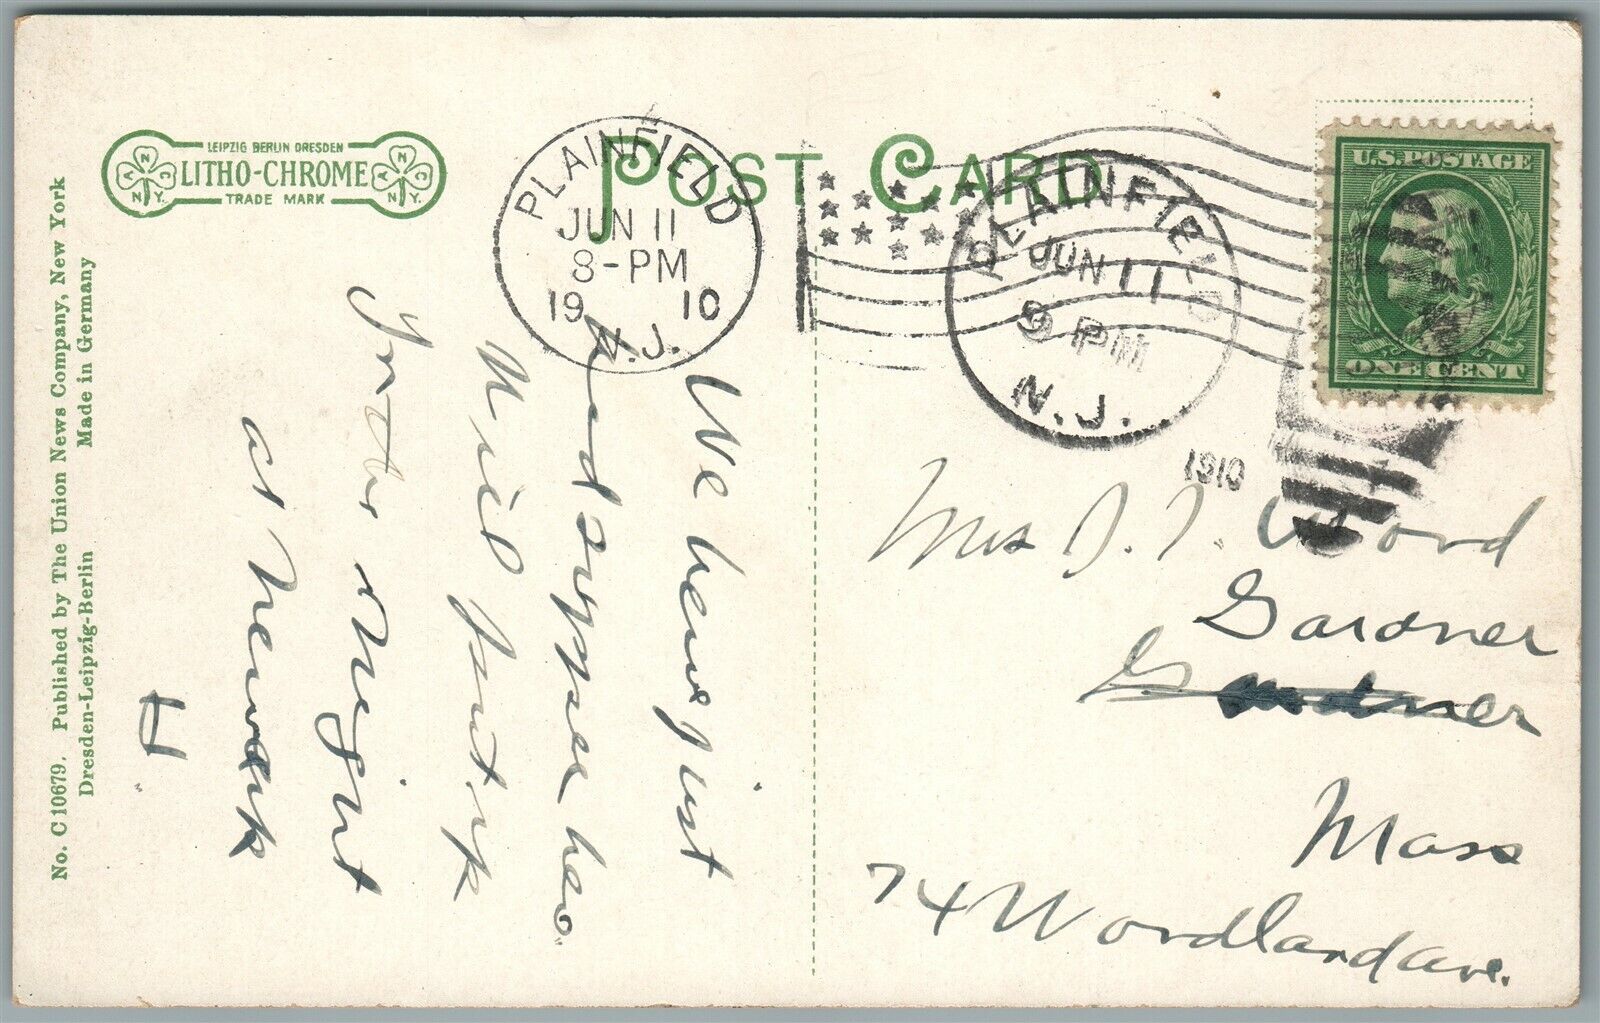 No. C10679. Published by The Union News Company, New York
Dresden-Leipzig-Berlin Made in Germany
LEIPZIG BERLIN DRESDEN
LITHO-CHROME
TRADE MARK
N
A C
N.Y.
N
A C
N.Y.
POST CARD
PLAINFIELD
JUN 11
8-PM
19 10
N.J.
PLAINFIELD
JUN 11
9 PM
N.J.
1910
U.S. POSTAGE
ONE CENT
We have just
had supper here
Will put up
for the Night
at Newark
H.
Mrs J. J. Word
Gardner
Gardner
Mass
74 Woodland ave.